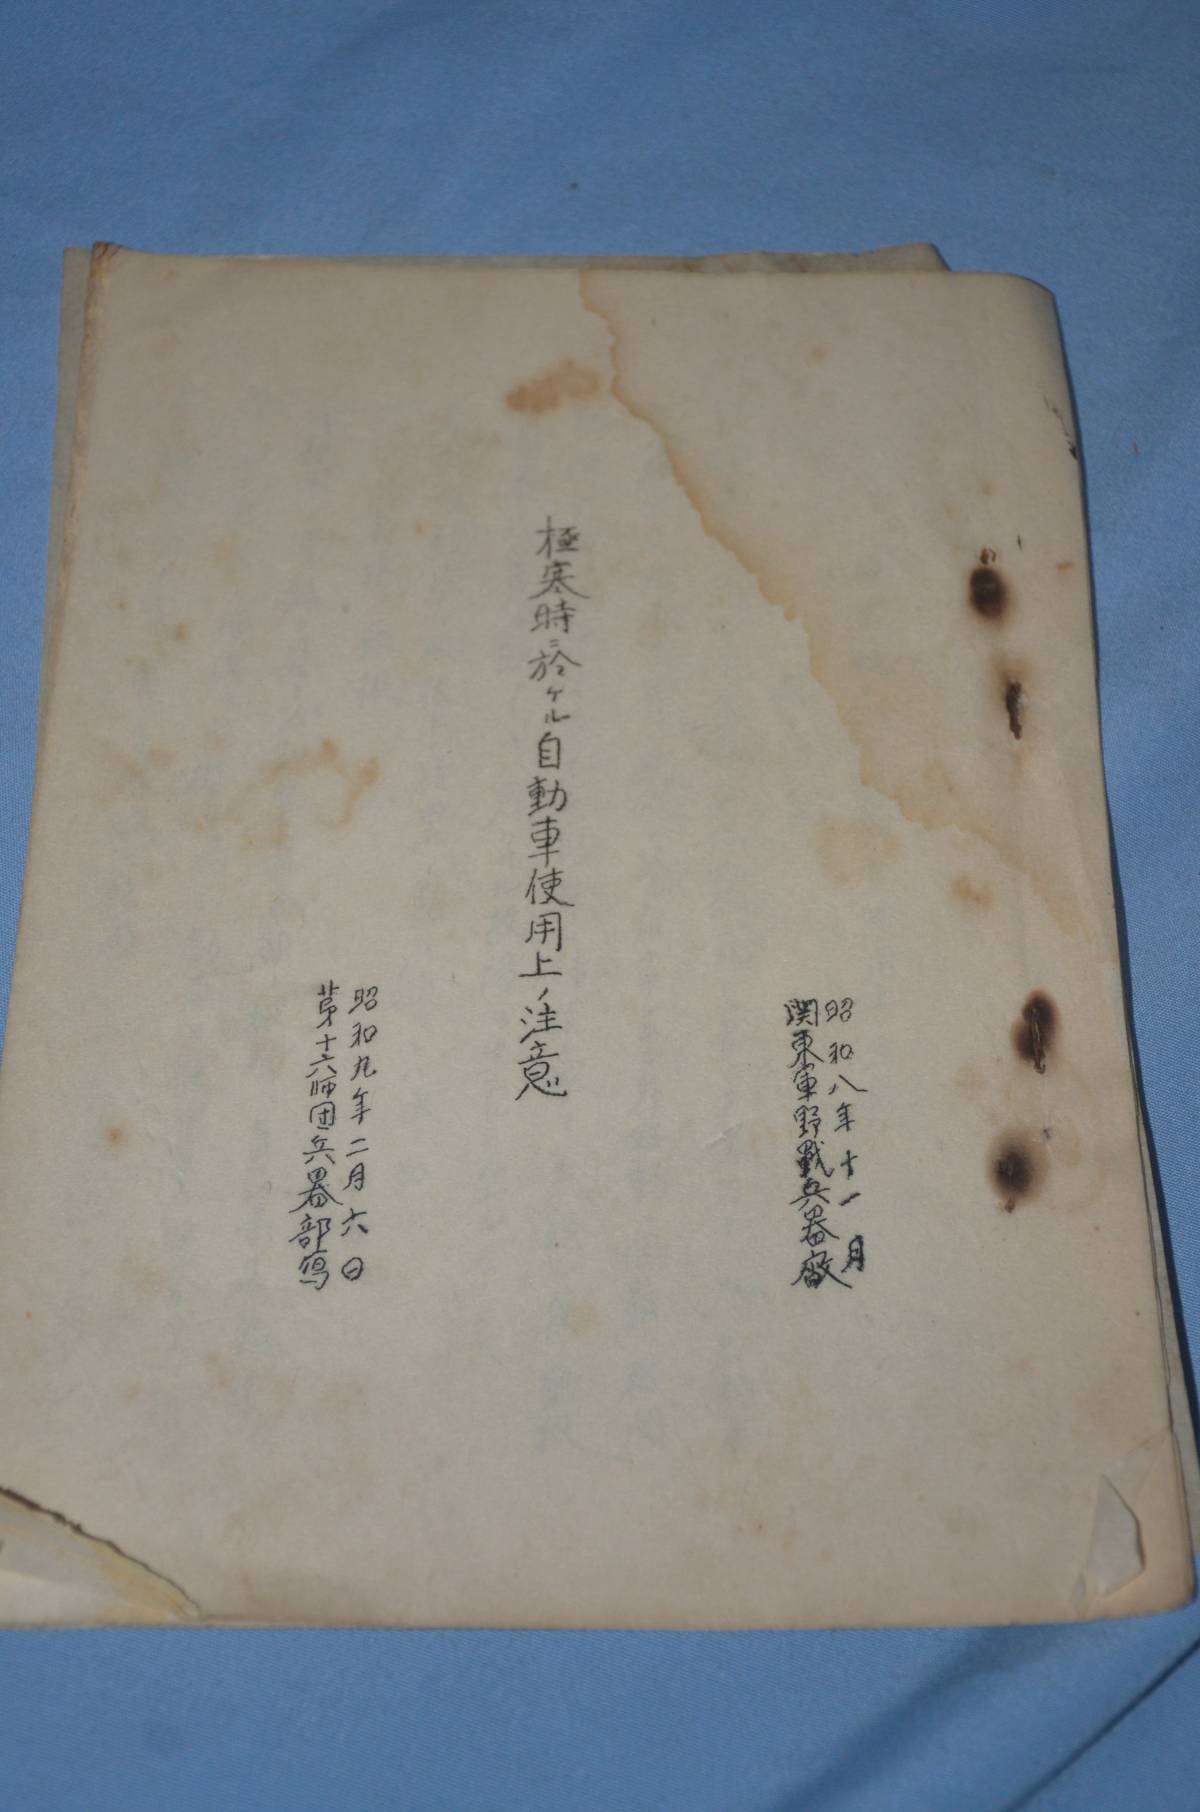 昭和八年十一月
関東軍野戦兵器廠
極寒時ニ於ケル自動車使用上ノ注意
昭和九年二月六日
第十六師団兵器部写